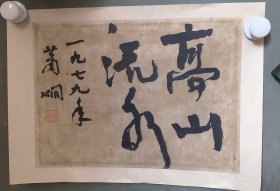 高山
流水
一九七九年
萧娴